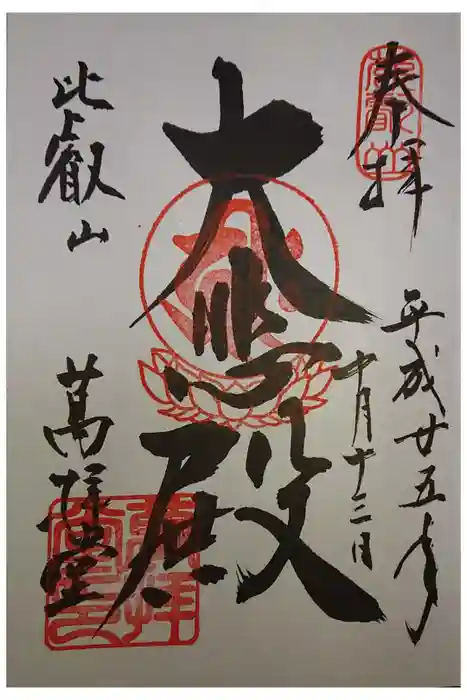 奉拝
平成廿五年
十月十三日
大悲殿
比叡山
萬拝堂
萬拝
堂印